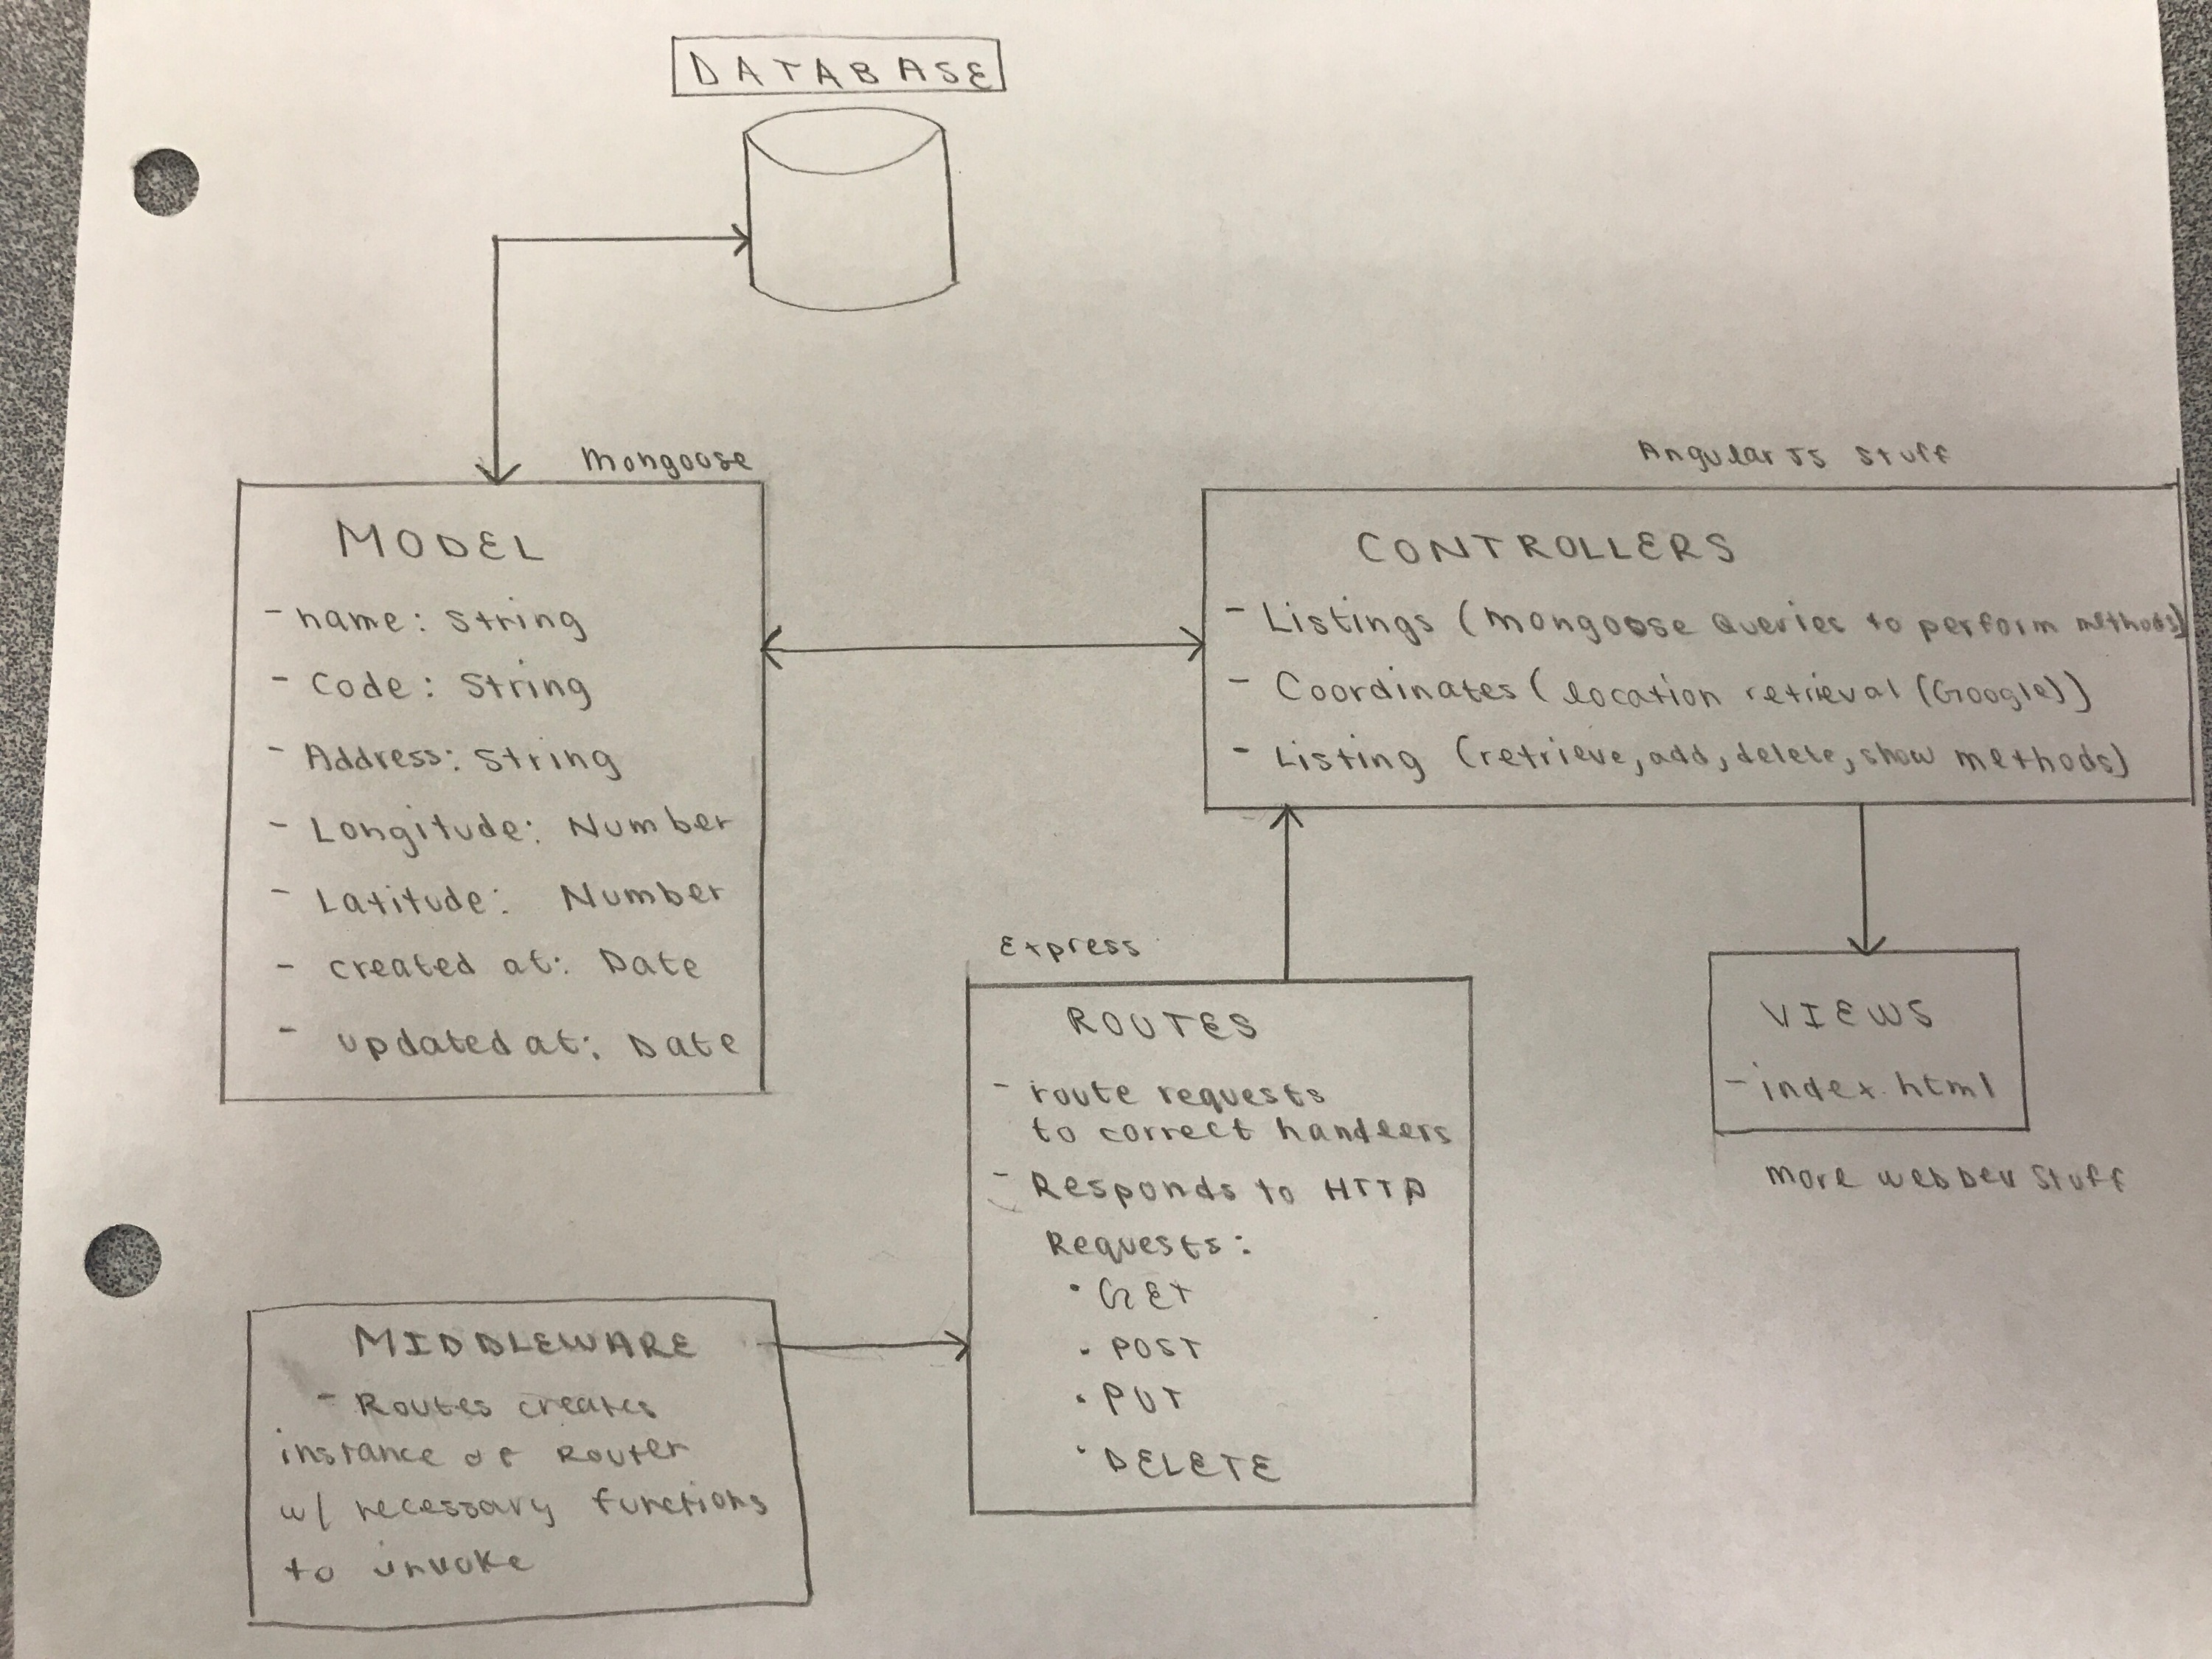 DATABASE
Mongoose
MODEL
- name: String
- Code: String
- Address: String
- Longitude: Number
- Latitude: Number
- created at: Date
- updated at: Date
Angular JS Stuff
CONTROLLERS
- Listings (Mongoose Queries to perform methods)
- Coordinates (location retrieval (Google))
- Listing (retrieve, add, delete, show methods)
Express
ROUTES
- route requests
to correct handlers
- Responds to HTTP
Requests:
• GET
• POST
• PUT
• DELETE
VIEWS
- index.html
More web Dev Stuff
MIDDLEWARE
- Routes creates
instance of Router
w/ necessary functions
to invoke